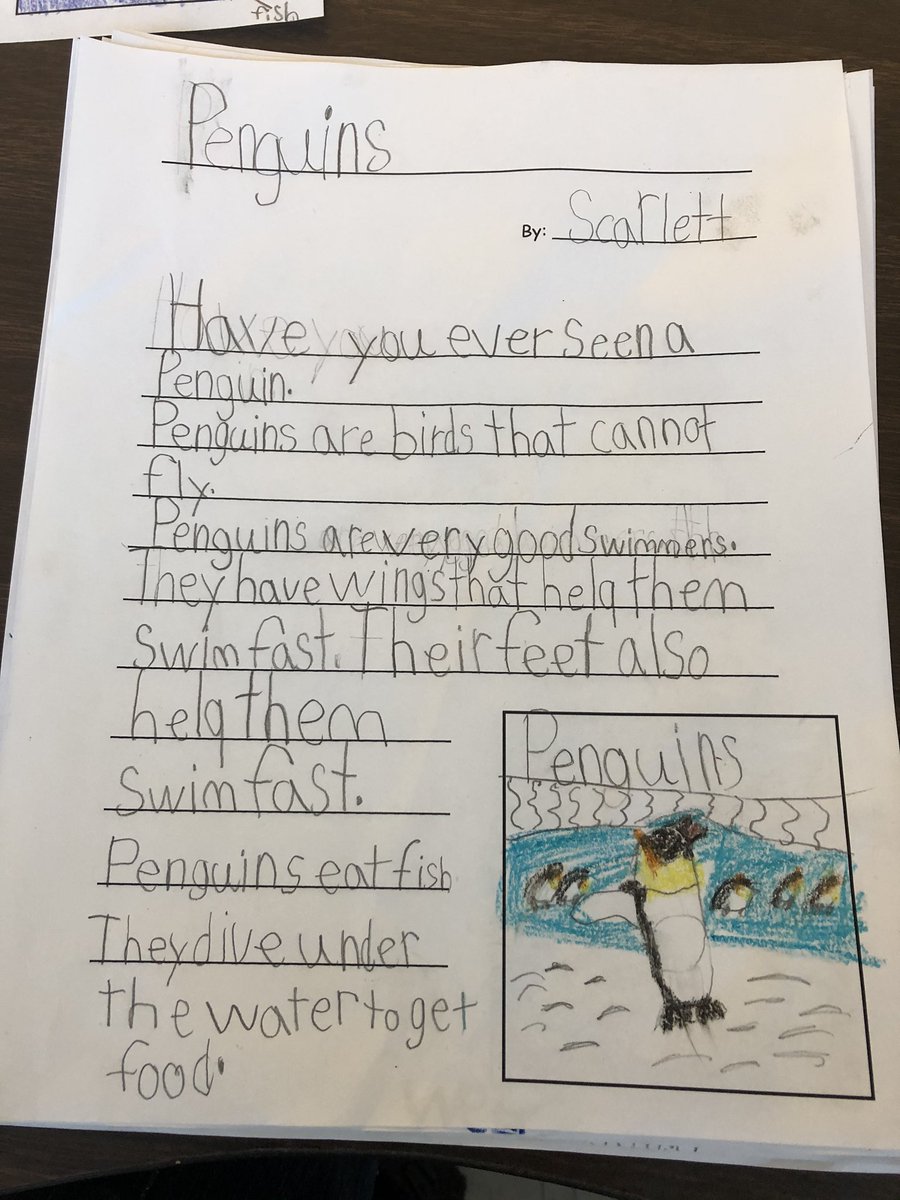 fish
Penguins
By: Scarlett
Have you ever seen a
Penguin.
Penguins are birds that cannot
fly.
Penguins are very good swimmers.
They have wings that help them
swim fast. Their feet also
help them
swim fast.
Penguins eat fish
They dive under
the water to get
food.
Penguins